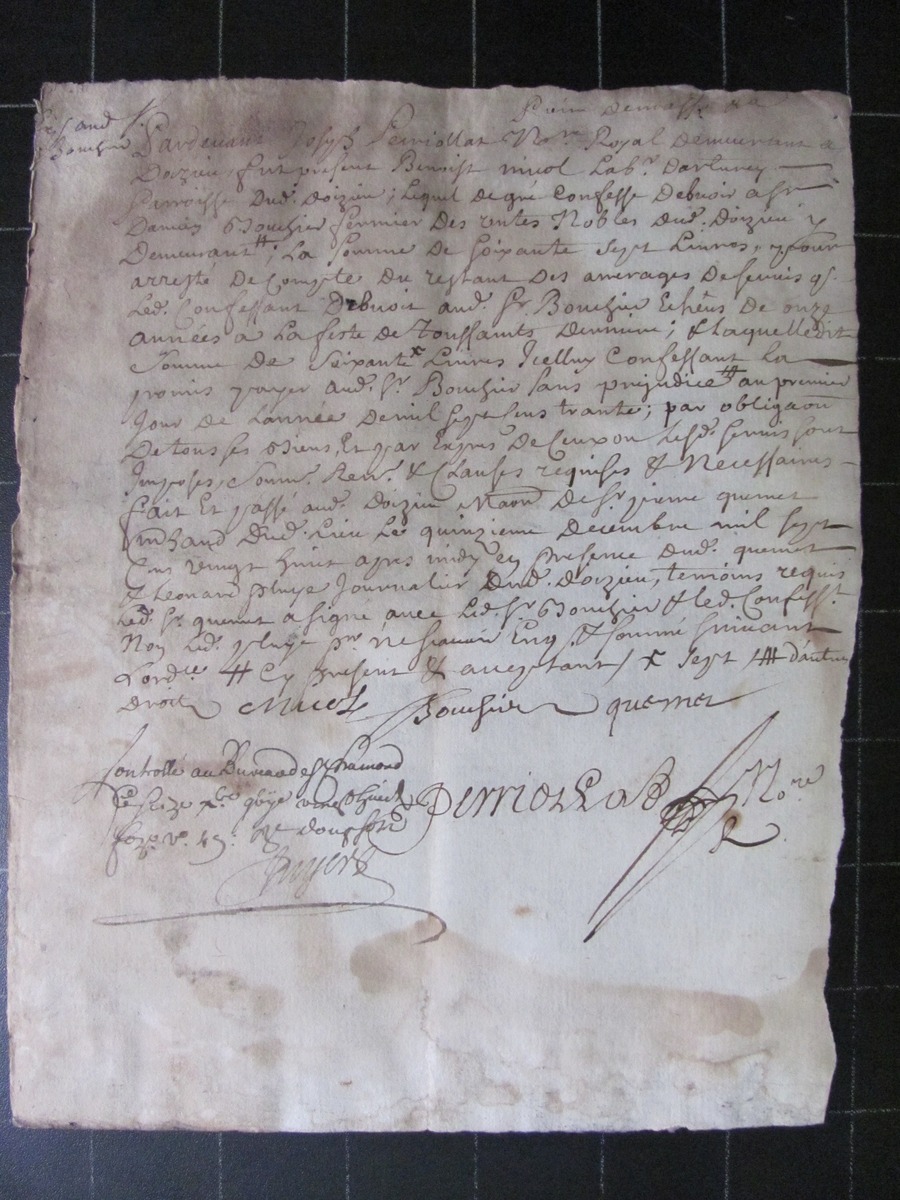 aud.
Bouchier Pardevant Joseph Perriollat No.re Royal demeurant a
Doizieu, fut present Benoist nicol Lab.r
Parroisse dud. doizieu; Lequel de gré Confesse debvoir a Sr
Damien Bouchier fermier des rentes Nobles dud. doizieu y
Demeurant #; La somme de soixante sept Livres, pour
arresté de Compte du restant des arrerages deservis q.
Led. Confessant debvoit aud. Sr. Bouchier Echeus de onze
années a La feste de Toussaints derniere; & laquelle dit
Somme de soixante x Livres Icelluy Confessant La
promis payer aud. Sr. Bouchier sans prejudice ## au premier
Jour de Lannée de mil sept cens trante; par obligaon
De tous ses Biens, Et par Expres de Ceux ou Lesd. servis sont
Imposés, Soum. Ren. & Clauses requises & Necessaires
fait Et passé aud. doizieu Maon de Sr. pierre quemet
mchand Dud. Lieu Le quinzieme decembre mil sept
Cens vingt huit apres midy en presence dud. quemet
& Leonard journalier Dud. doizieu, temoins requis
Led. Sr. quemet a signé avec Led. Sr. Bouchier & led. Confesst.
Non Led. pr. ne scavoir Enq. & sommé suivant
Lordce # Cy present & acceptant / x sept / ## dautre
droit Nicol Bouchier quemet
Controllé au Bureau de St Chamond
Le seize xbre vingt huit Perriollat No.re
fo v.o R. douze sols